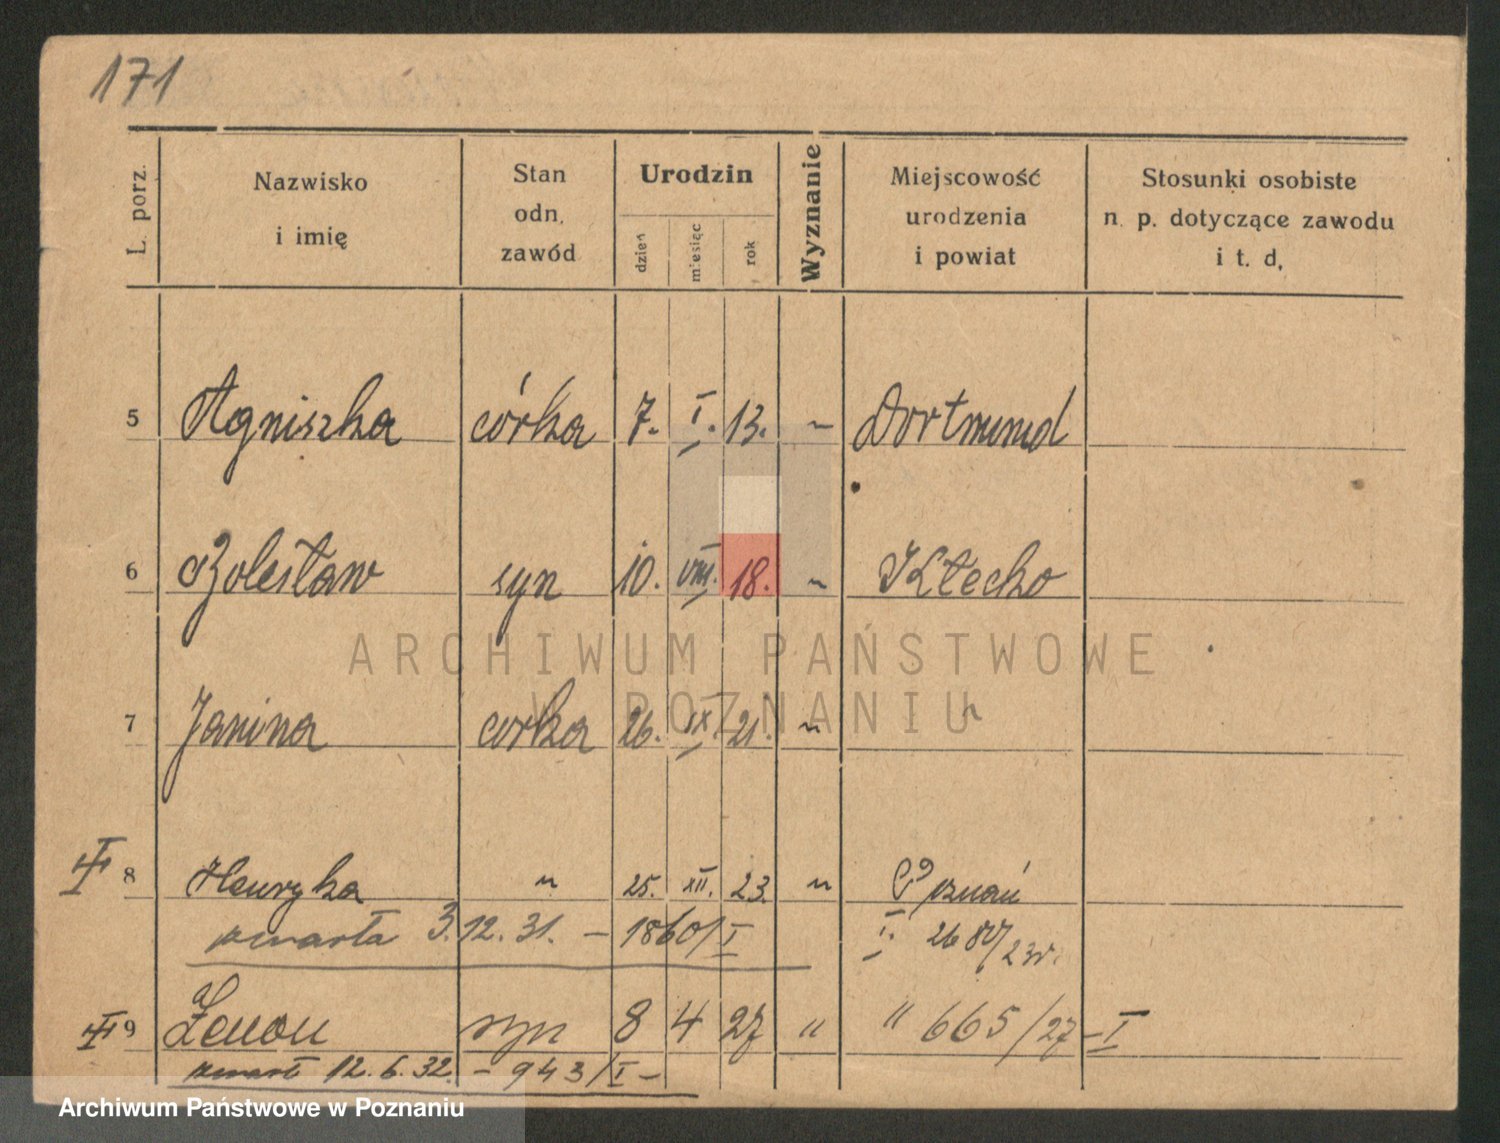 171
L. porz.
Nazwisko
i imię
Stan
odn.
zawód
Urodzin
dzień
miesiąc
rok
Wyznanie
Miejscowość
urodzenia
i powiat
Stosunki osobiste
n. p. dotyczące zawodu
i t. d.
5 Agniszka córka 7. I. 13. " Dortmund
6 Bolesław syn 10. VIII. 18. " Kłecko
7 Janina corka 26. IX 21. " "
8 Henryka " 25. XII. 23. " Poznań
zmarła 3.12.31. – 1860/I
I. 2680/23r.
9 Zenon syn 8 4 27 " " 665/27 – I
zmarł 12.6.32. – 943/I –
ARCHIWUM PAŃSTWOWE
W POZNANIU
Archiwum Państwowe w Poznaniu